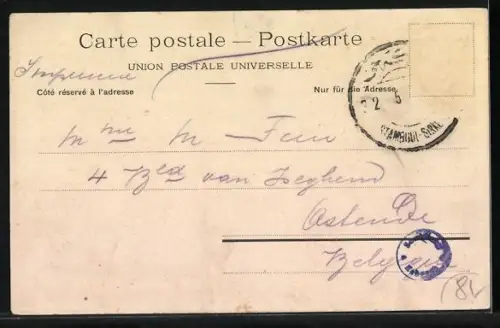 Carte postale — Postkarte
UNION POSTALE UNIVERSELLE
Imprimé
Côté réservé à l'adresse
Nur für die Adresse
2 5
STAMBOUL
Mme M
4 Bld van Iseghem
Ostende
Belgique
(8L